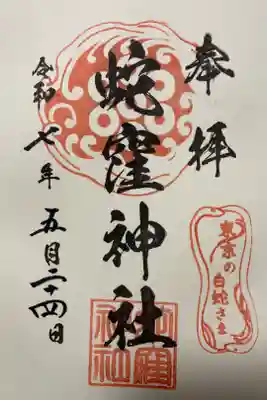 奉拝
蛇窪神社
令和七年
五月二十四日
東京の
白蛇さま